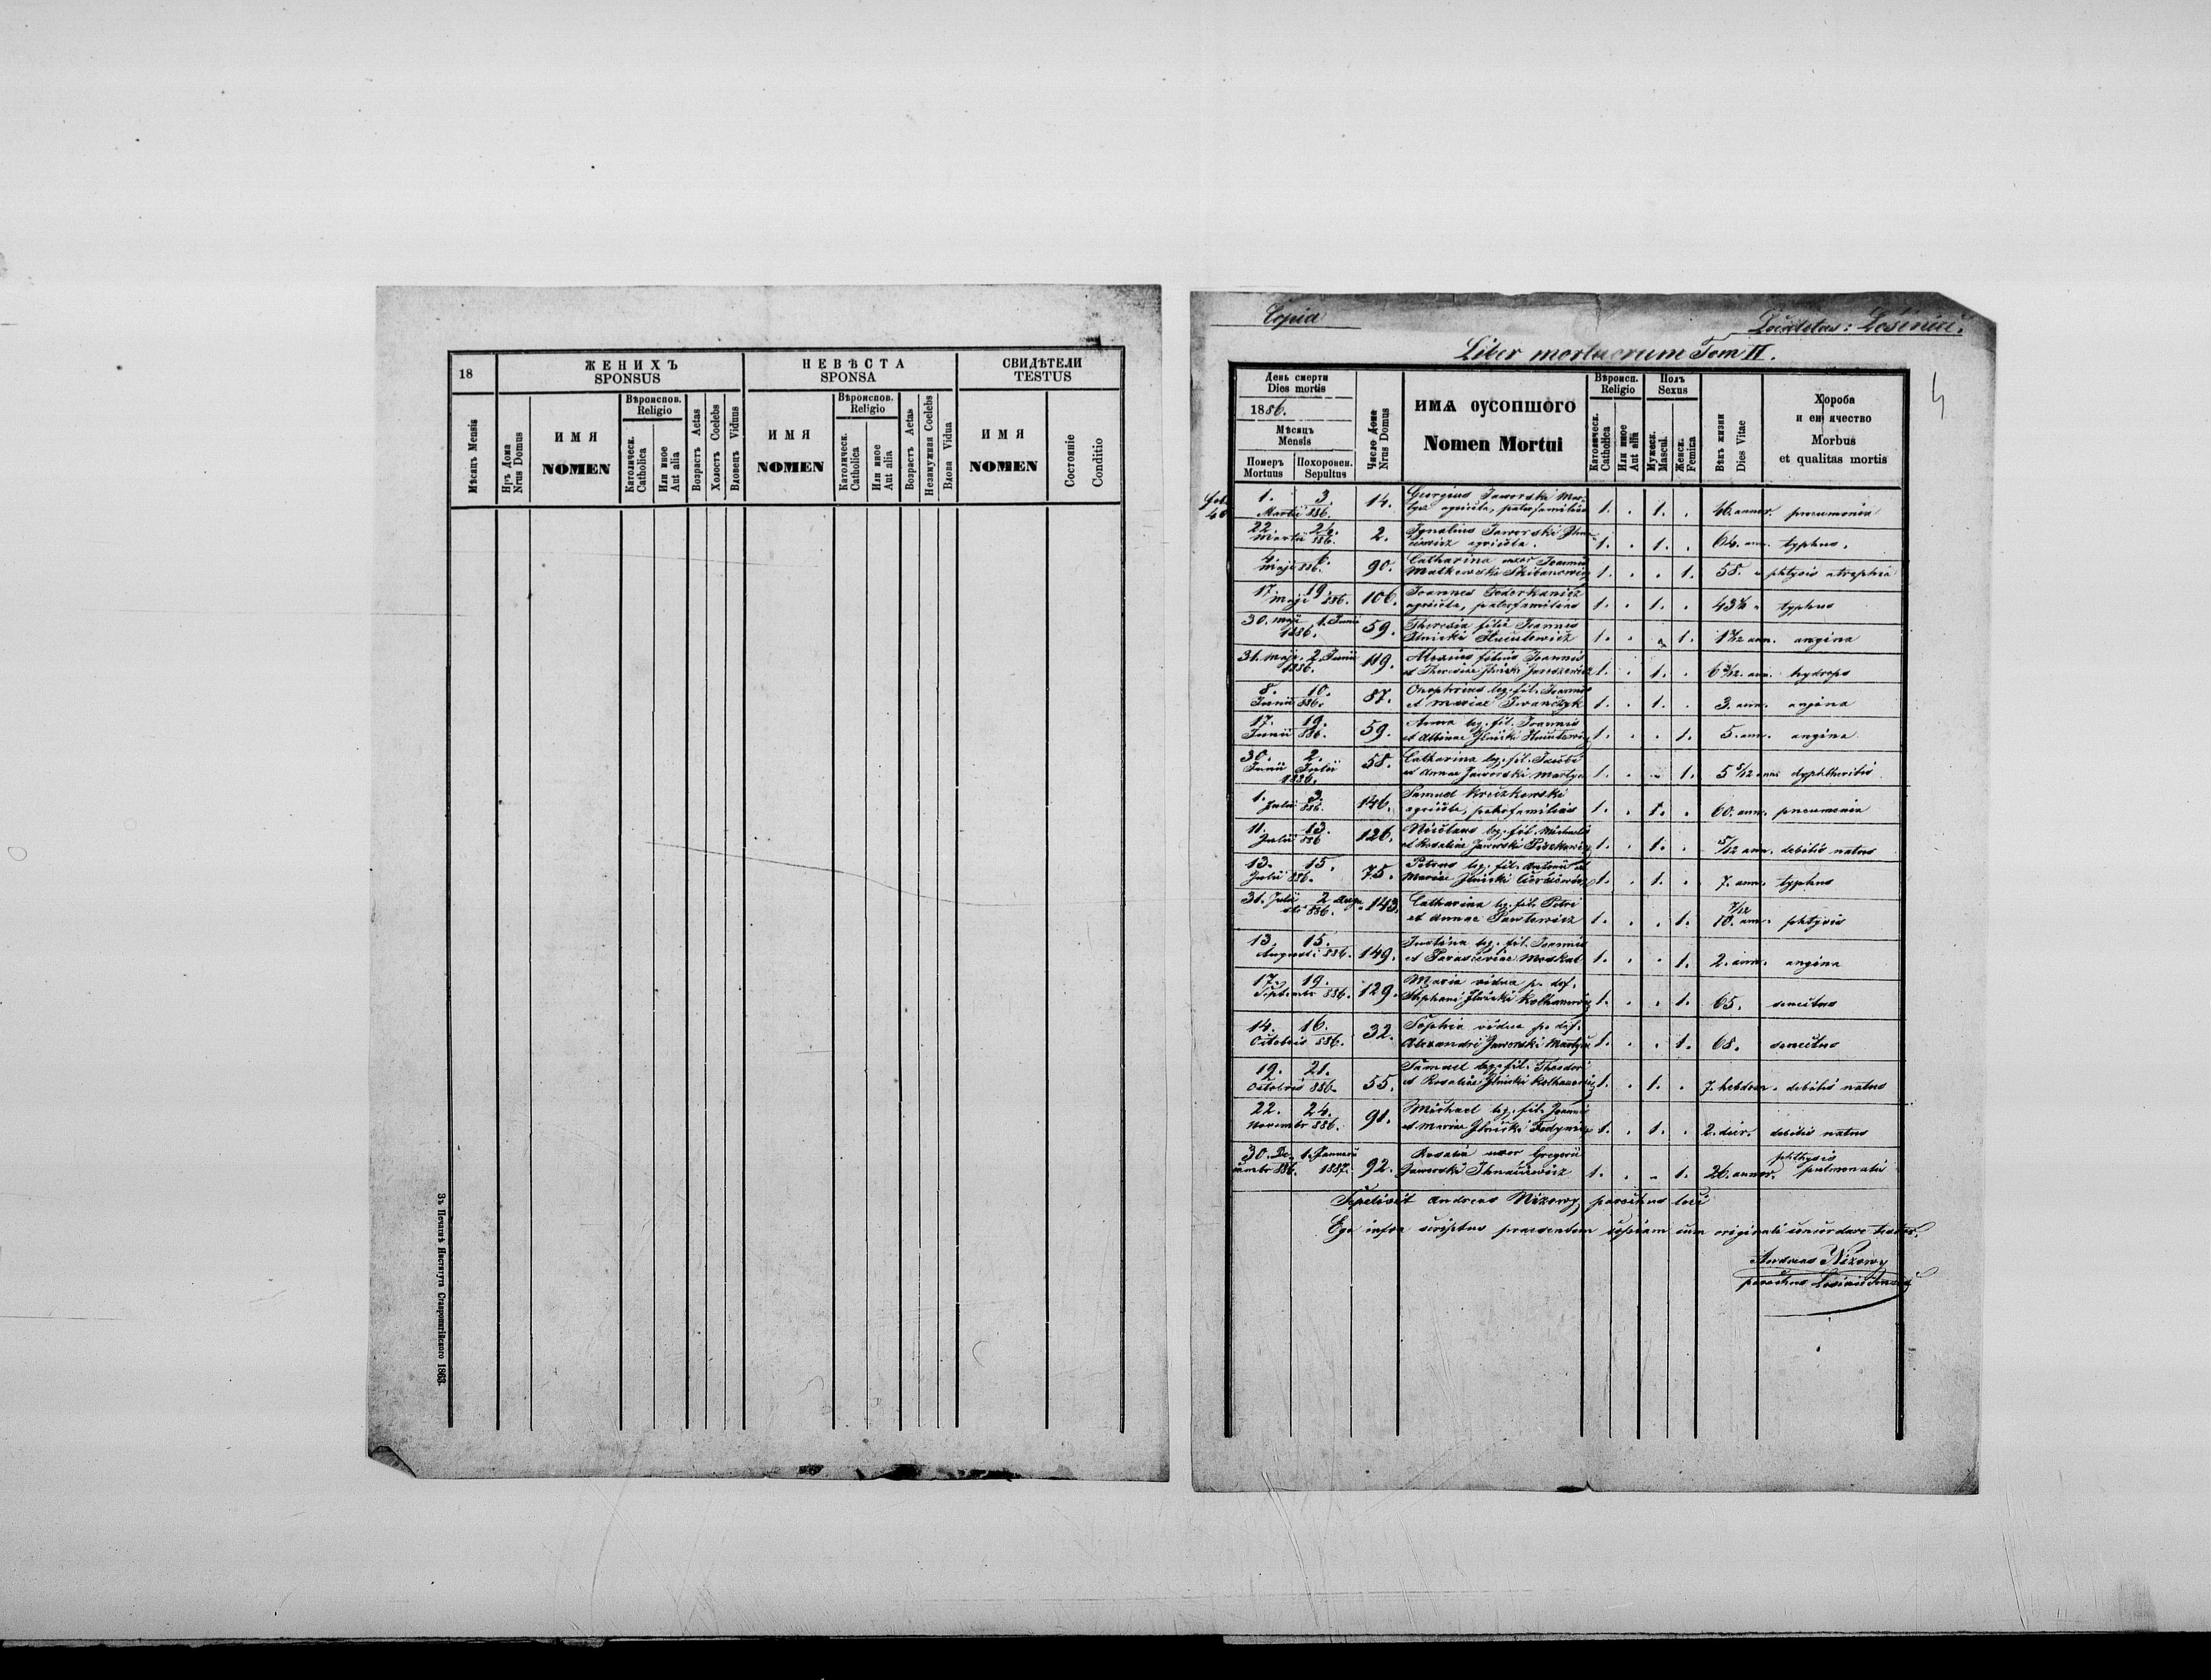 18
ЖЕНИХЪ
SPONSUS
НЕВѢСТА
SPONSA
СВИДѢТЕЛИ
TESTUS
Мѣсяцъ Mensis
Нръ Дома
Nrus Domus
ИМЯ
NOMEN
Вѣроиспов.
Religio
Католическ.
Catholica
Или иное
Aut alia
Возрастъ Aetas
Холостъ Coelebs
Вдовецъ Viduus
ИМЯ
NOMEN
Вѣроиспов.
Religio
Католическ.
Catholica
Или иное
Aut alia
Возрастъ Aetas
Незамужная Coelebs
Вдова Vidua
ИМЯ
NOMEN
Состояніе
Conditio
Зъ Печатнѣ Института Ставропигійского 1863.
Copia
Liber mortuorum Tom II.
День смерти
Dies mortis
1886.
Мѣсяцъ
Mensis
Померъ
Mortuus
Похоронен.
Sepultus
Число Дома
Nrus Domus
ИМѦ ОУСОПШОГО
Nomen Mortui
Вѣроисп.
Religio
Католическ.
Catholica
Или иное
Aut alia
Полъ
Sexus
Мужеск.
Mascul.
Женск.
Femina
Вѣкъ жизни
Dies Vitae
Хороба
и еи ячество
Morbus
et qualitas mortis
1. 3. Martii 886. 14. Georgius Jaworski agricola, paterfamilias 1. . 1. . 46. annor. pneumonia
22. 24. Martii 886. 2. Ignatius Jaworski agricola. 1. . 1. . 64. ann. typhus.
4. 6. Maji 886. 90. Catharina uxor Joannis Matkowski 1. . . 1. 58. " phtysis atrophia
17. 19. Maji 886. 106. Joannes agricola, paterfamilias 1. . 1. . typhus
30. Maji 1. Junii 1886. 59. Theresia filia Joannis Ilnicki 1. . . 1. ann. angina
31. Maji. 2. Junii 1886. 119. Alexius filius Joannis et Theresiae Ilnicki 1. . 1. . ann. hydrops
8. 10. Junii 886. 87. Onophrius leg. fil. Joannis et Mariae Iwańczyk 1. . 1. . 3. ann. angina
17. 19. Junii 886. 59. Anna leg. fil. Joannis et Albinae Ilnicki 1. . . 1. 5. ann. angina
30. Junii 2. Julii 1886. 58. Catharina leg. fil. Jacobi et Annae Jaworski 1. . . 1. 5 5/12 ann. dyphtheritis
1. 3. Julii 886. 146. Samuel Kruszkowski agricola, paterfamilias 1. . 1. . 60. ann. pneumonia
11. 13. Julii 886 126. Nicolaus leg. fil. Michaelis et Rosaliae Jaworski 1. . 1. . 5/12 ann. debilis natus
13. 15. Julii 886. 75. Petrus leg. fil. Antonii et Mariae Ilnicki 1. . 1. . 7. ann. typhus
31. Julii 2 886. 143. Catharina leg. fil. Petri et Annae Pawlewicz 1. . . 1. 10. 7/12 ann. phtysis
13. 15. Augusti 886. 149. Justina leg. fil. Joannis et Parasceviae Moskal 1. . . 1. 2. ann. angina
17. 19. Septembr 886. 129. Maria vidua p. def. Stephani Ilnicki 1. . . 1. 65. senectus
14. 16. Octobris 886. 32. Sophia vidua p. def. Alexandri Jaworski 1. . . 1. 68. senectus
19. 21. Octobris 886. 55. Samuel leg. fil. Theodori et Rosaliae Ilnicki 1. . 1. . 7. hebdom. debilis natus
22. 24. Novembr 886. 91. Michael leg. fil. Joannis et Mariae Ilnicki 1. . 1. . 2. dier. debilis natus
30. Decembr 886. 1. Januarii 1887. 92. Rosalia uxor Gregorii Jaworski 1. . . 1. 26. annor. phthysis pulmonalis
Sepelivit Andreas Nizowy parochus loci
Ego infra scriptus praesentem copiam cum originali concordare testor.
Andreas Nizowy
parochus